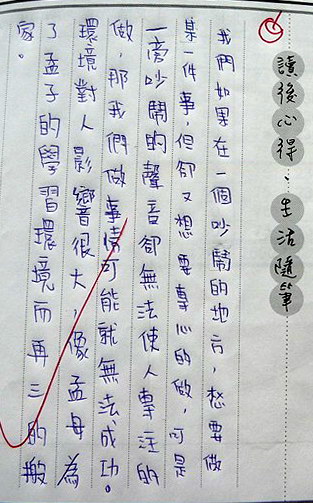 讀後心得．生活隨筆
我們如果在一個吵鬧的地方，想要做
某一件事，但卻又想要專心的做，可是
一旁吵鬧的聲音卻無法使人專注的
做，那我們做事情可能就無法成功。
環境對人影響很大，像孟母為
了孟子的學習環境而再三的搬
家。